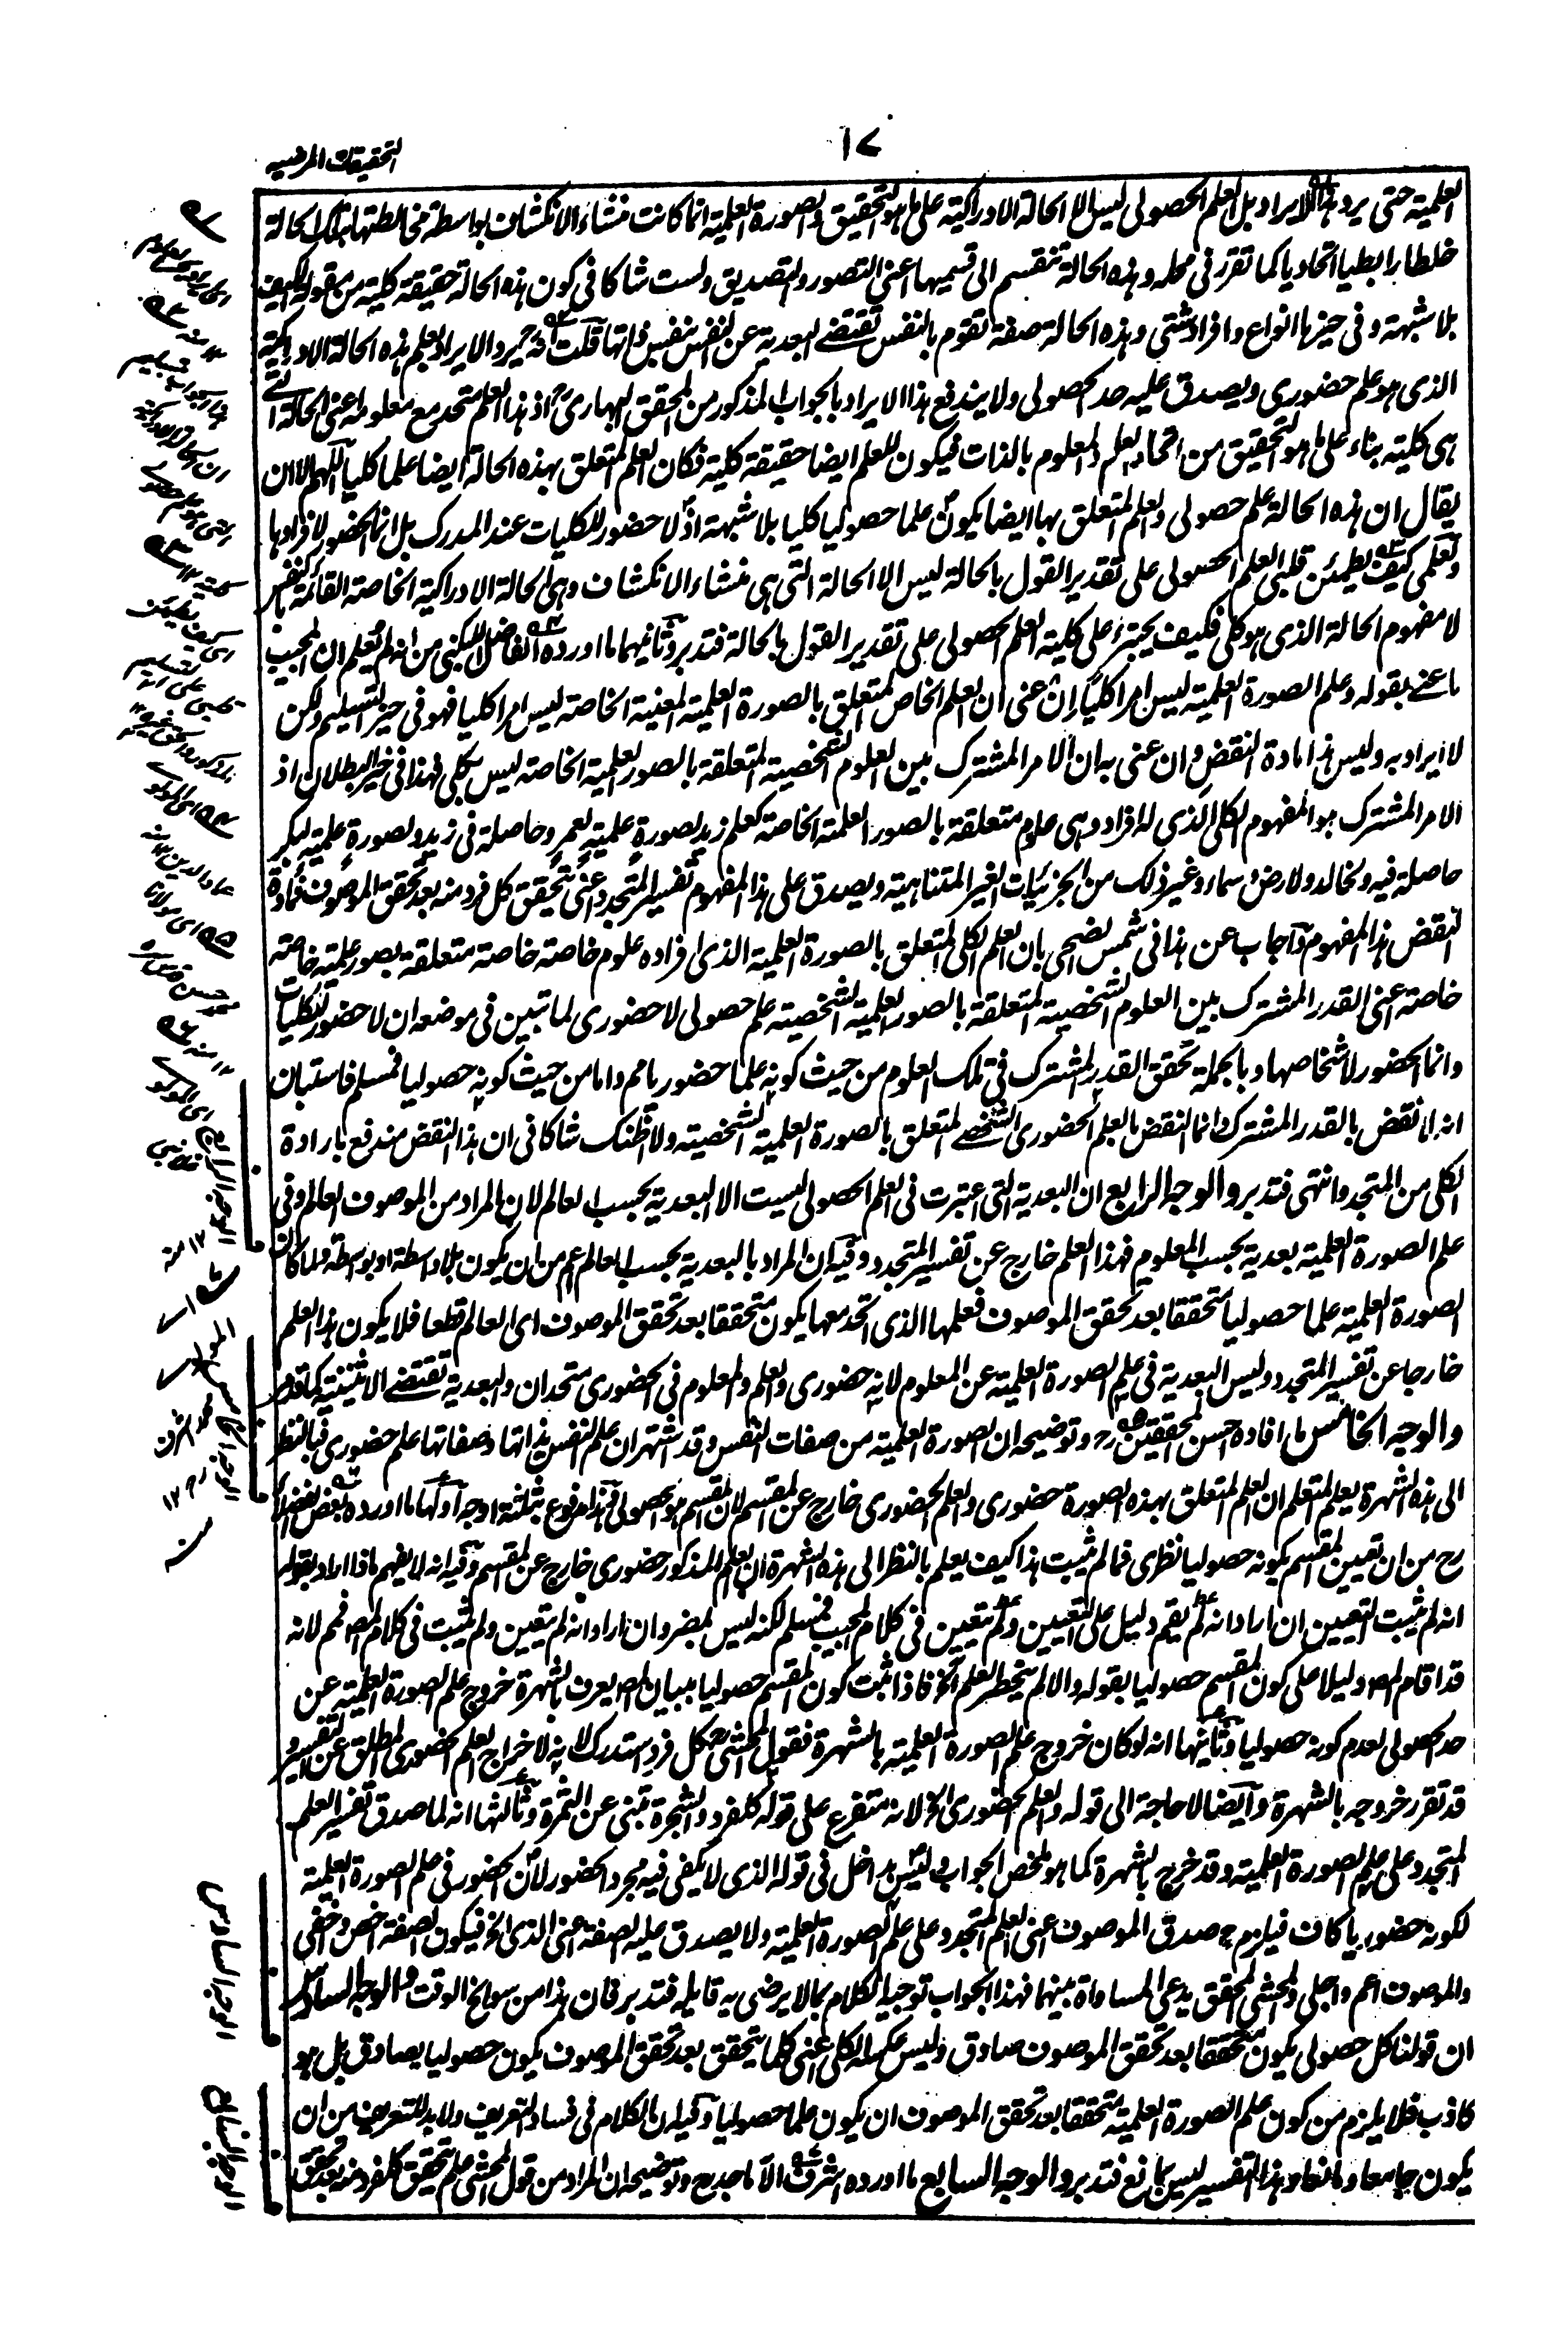 ١٧
التحقيقات المرضيه
العلمية حتى يرد هذا الايراد بل العلم الحصولى ليس الا الحالة الادراكية على ما هو التحقيق والصورة العلمية انما كانت منشاء الانكشاف بواسطة مخالطتها بتلك الحالة
خلطا رابطيا اتحاديا كما تقرر فى محله وهذه الحالة تنقسم الى قسيمها اعنى التصور والتصديق ولست شاكا فى كون هذه الحالة حقيقة كلية من مقولة الكيف
بلا شبهة وفى حيزها انواع وافراد شتى وهذه الحالة صفة تقوم بالنفس تقتضى البعدية عن النفس بنفس ذاتها قلت الايراد بعلم هذه الحالة الادراكية
الذى هو علم حضورى ويصدق عليه حد الحصولى ولا يندفع هذا الايراد بالجواب المذكور من المحقق البهارى اذ هذا العلم متحد مع معلومه اعنى الحالة التى
هى كلية بناء على ما هو التحقيق من اتحاد العلم والمعلوم بالذات فيكون للعلم ايضا حقيقة كلية فكان العلم المتعلق بهذه الحالة ايضا علما كليا اللهم الا ان
يقال ان هذه الحالة علم حصولى والعلم المتعلق بها ايضا يكون علما حصوليا كليا بلا شبهة اذ لا حضور للكليات عند المدرك بل انما الحضور لافرادها
ولعلمى كيف يطمئن قلبى العلم الحصولى على تقدير القول بالحالة ليس الا الحالة التى هى منشاء الانكشاف وهى الحالة الادراكية الخاصة القائمة بالنفس
لا مفهوم الحالة الذى هو كلى فكيف يجترء على كلية العلم الحصولى على تقدير القول بالحالة فتدبر وثانيهما ما اورده الفاضل اللبكنى من انه لم يعلم ان المجيب
ما عنى بقوله وعلم الصورة العلمية ليس امرا كليا ان عنى ان العلم الخاص المتعلق بالصورة العلمية المعينة الخاصة ليس امرا كليا فهو فى حيز التسليم ولكن
لا ايراد به وليس هذا مادة النقض وان عنى به ان الامر المشترك بين العلوم الشخصية المتعلقة بالصور العلمية الخاصة ليس بكلى فهذا فى حيز البطلان اذ
الامر المشترك هو المفهوم الكلى الذى له افراد وهى علوم متعلقة بالصور العلمية الخاصة كعلم زيد لصورة علمية لعمر وحاصلة فى زيد ولصورة علمية لبكر
حاصلة فيه ولخالد ولارض وسماء وغير ذلك من الجزئيات الغير المتناهية ويصدق على هذا المفهوم تفسير المتجدد اعنى تحقق كل فرد منه بعد تحقق الموصوف فمادة
النقض هذا المفهوم واجاب عن هذا فى شمس الضحى بان العلم الكلى المتعلق بالصورة العلمية الذى افراده علوم خاصة خاصة متعلقة بصور علمية خاصة
خاصة اعنى القدر المشترك بين العلوم الشخصية المتعلقة بالصور العلمية الشخصية علم حصولى لا حضورى لما تبين فى موضعه ان لا حضور للكليات
وانما الحضور لاشخاصها وبالجملة تحقق القدر المشترك فى تلك العلوم من حيث كونه علما حضوريا مم واما من حيث كونه حصوليا فمسلم فاستبان
انه لا نقض بالقدر المشترك وانما النقض بالعلم الحضورى الشخصى المتعلق بالصورة العلمية الشخصية ولا اظنك شاكا فى ان هذا النقض مندفع بارادة
الكلى من المتجدد انتهى فتدبر والوجه الرابع ان البعدية التى اعتبرت فى العلم الحصولى ليست الا البعدية بحسب العالم لان المراد من الموصوف العالم وفى
علم الصورة العلمية بعدية بحسب المعلوم فهذا العلم خارج عن تفسير المتجدد وفيه ان المراد بالبعدية بحسب العالم اعم من ان يكون بلا واسطة او بواسطة ولما كان
الصورة العلمية علما حصوليا متحققا بعد تحقق الموصوف فعلمها الذى اتحد معها يكون متحققا بعد تحقق الموصوف اى العالم قطعا فلا يكون هذا العلم
خارجا عن تفسير المتجدد وليس البعدية فى علم الصورة العلمية عن المعلوم لانه حضورى والعلم والمعلوم فى الحضورى متحدان والبعدية تقتضى الاثنينية كما تقرر
والوجه الخامس ما افاده احسن المحققين رح وتوضيحه ان الصورة العلمية من صفات النفس وقد اشتهر ان علم النفس بذاتها وصفاتها علم حضورى فبالنظر
الى هذه الشهرة يعلم المتعلم ان العلم المتعلق بهذه الصورة حضورى والعلم الحضورى خارج عن المقسم لان المقسم هو الحصولى فهذا مدفوع بثلثة اوجه اولها ما اورده بعض الفضلاء
رح من ان تعيين المقسم بكونه حصوليا نظرى فما لم يثبت هذا كيف يعلم بالنظر الى هذه الشهرة ان العلم المذكور حضورى خارج عن المقسم وفيه انه لا يفهم ماذا اراد بقوله
انه لم يثبت التعيين ان اراد انه لم يقم دليل على التعيين ولم يتعين فى كلام المجيب فمسلم لكنه ليس بمضر وان اراد انه لم يتعين ولم يثبت فى كلام المص فمم لانه
قد اقام المص دليلا على كون المقسم حصوليا بقوله والا لم ينحصر العلم الخ فاذا ثبت كون المقسم حصوليا ببيان المص يعرف بالشهرة خروج علم الصورة العلمية عن
حد الحصولى لعدم كونه حصوليا وثانيها انه لو كان خروج علم الصورة العلمية بالشهرة فقول المحشى كل فرد مستدرك لانه لاخراج العلم الحضورى المطلق عن التفسير و
قد تقرر خروجه بالشهرة وايضا لا حاجة الى قوله والعلم الحضورى الخ لانه متفرع على قوله كل فرد والشجرة تنبئ عن الثمرة وثالثها انه لما صدق تفسير العلم
المتجدد على علم الصورة العلمية وقد خرج بالشهرة كما هو ملخص الجواب وليس بداخل فى قوله الذى لا يكفى فيه مجرد الحضور لان الحضور فى علم الصورة العلمية
لكونه حضوريا كاف فيلزم ح صدق الموصوف اعنى العلم المتجدد على علم الصورة العلمية ولا يصدق عليه الصفة اعنى الذى الخ فيكون الصفة اخص واخفى
والموصوف اعم واجلى والمحشى المحقق يدعى المساواة بينهما فهذا الجواب توجيه الكلام بما لا يرضى به قايله فتدبر فان هذا من سوانح الوقت والوجه السادس
ان قولنا كل حصولى يكون متحققا بعد تحقق الموصوف صادق وليس عكسه الكلى اعنى كلما يتحقق بعد تحقق الموصوف يكون حصوليا بصادق بل هو
كاذب فلا يلزم من كون علم الصورة العلمية متحققا بعد تحقق الموصوف ان يكون علما حصوليا وفيه ان الكلام فى فساد التعريف ولا بد للتعريف من ان
يكون جامعا ومانعا وهذا التفسير ليس بمانع فتدبر والوجه السابع ما اورده اشرف الاماجد رح وتوضيحه ان المراد من قول المحشى علم تحقق كل فرد منه بعد تحقق
الوجه الرابع
الوجه الخامس
الوجه السادس
الوجه السابع